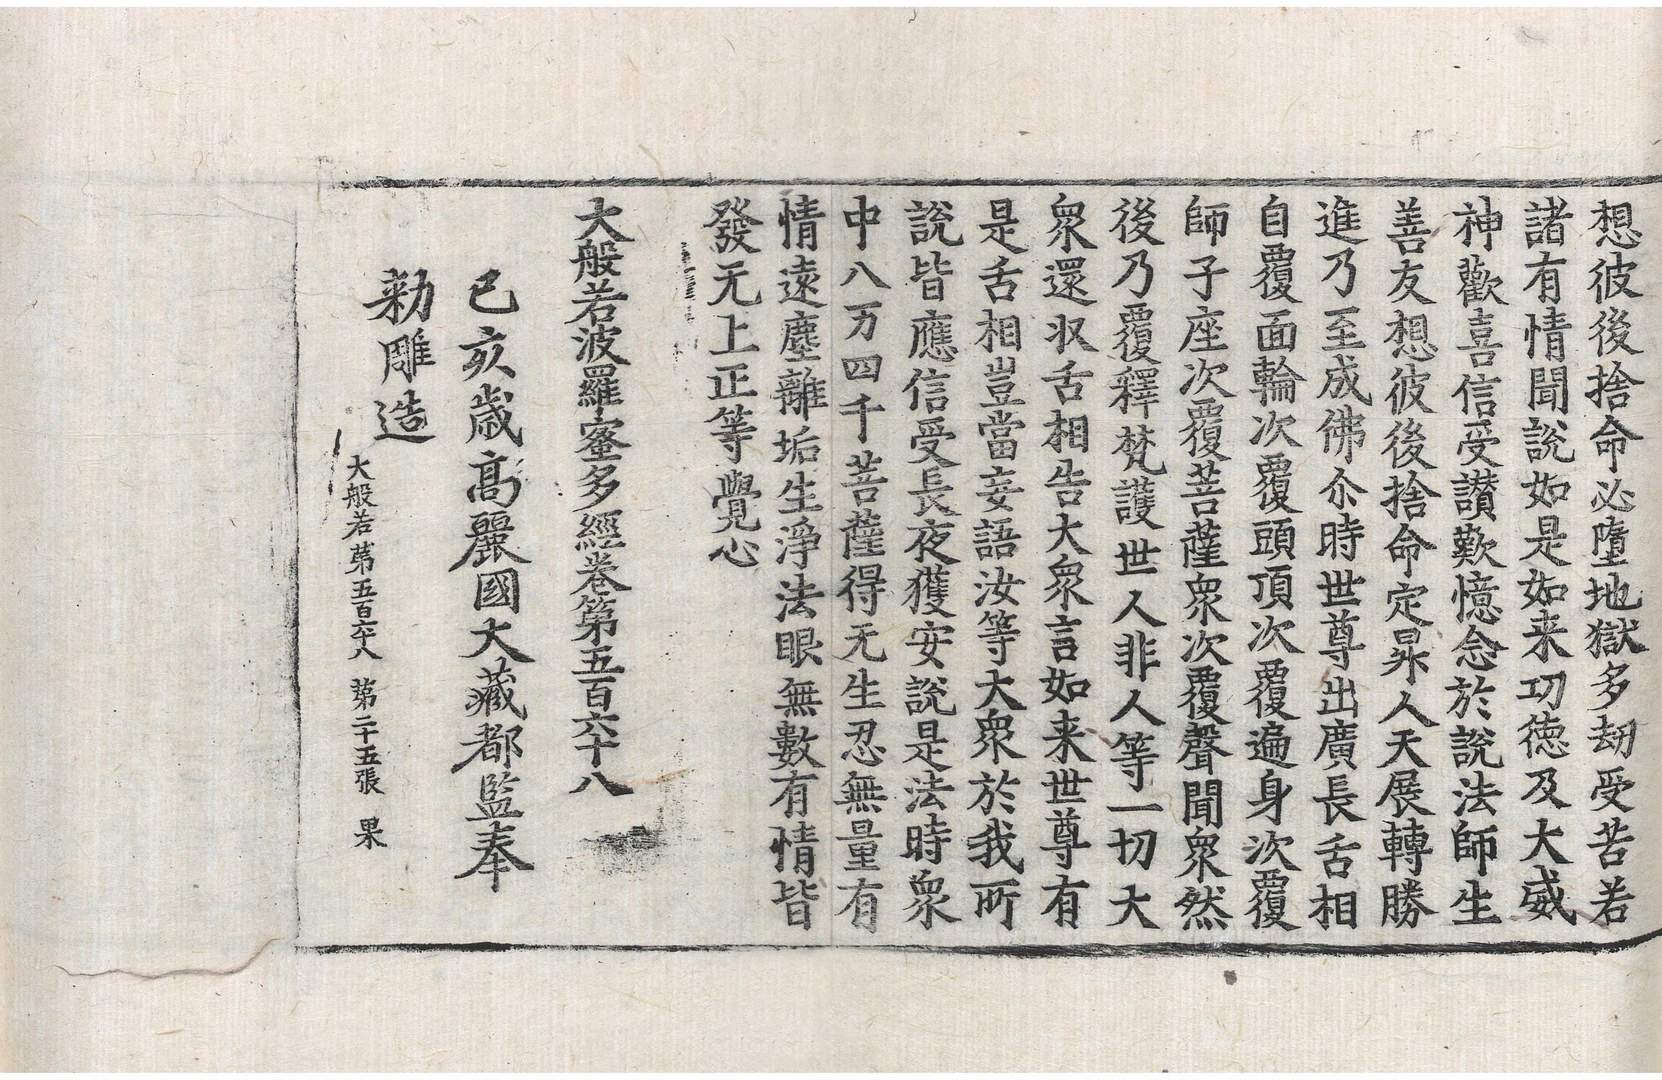 想彼後捨命必墮地獄多劫受苦若
諸有情聞說如是如来功徳及大威
神歡喜信受讃歎憶念於說法師生
善友想彼後捨命定昇人天展轉勝
進乃至成佛尒時世尊出廣長舌相
自覆面輪次覆頭頂次覆遍身次覆
師子座次覆菩薩衆次覆聲聞衆然
後乃覆釋梵護世人非人等一切大
衆還収舌相告大衆言如来世尊有
是舌相豈當妄語汝等大衆於我所
說皆應信受長夜獲安說是法時衆
中八万四千菩薩得无生忍無量有
情遠塵離垢生淨法眼無數有情皆
發无上正等覺心
大般若波羅蜜多經卷第五百六十八
己亥歳高麗國大藏都監奉
勑雕造
大般若第五百六十八 第二十五張 果